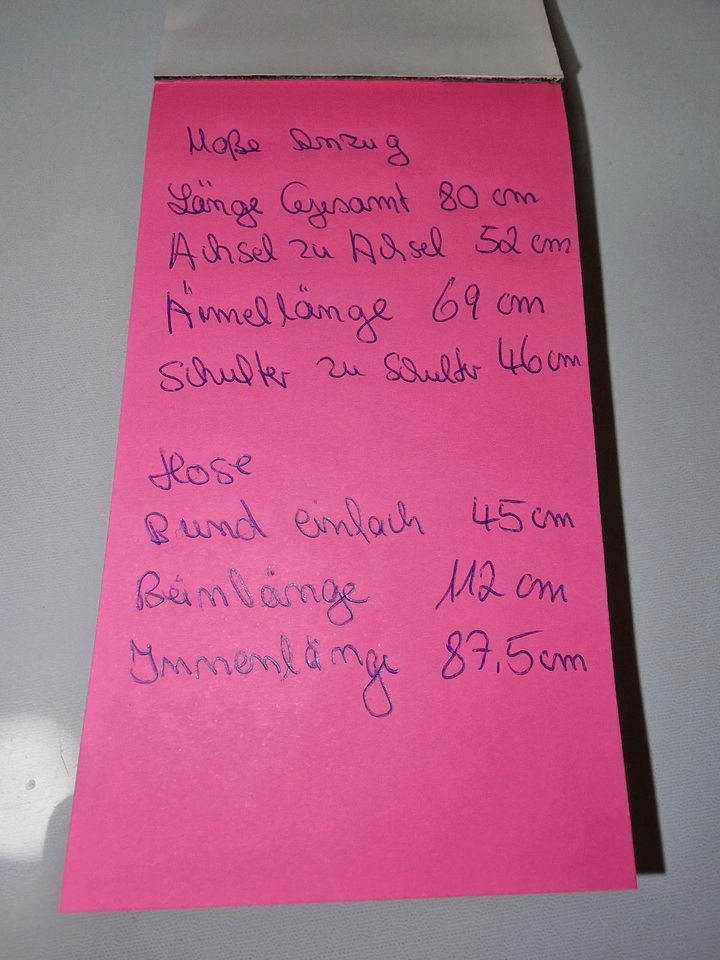 Maße Anzug
Länge Gesamt 80 cm
Achsel zu Achsel 52 cm
Ärmellänge 69 cm
Schulter zu Schulter 46 cm
Hose
Bund einfach 45 cm
Beinlänge 112 cm
Innenlänge 87,5 cm